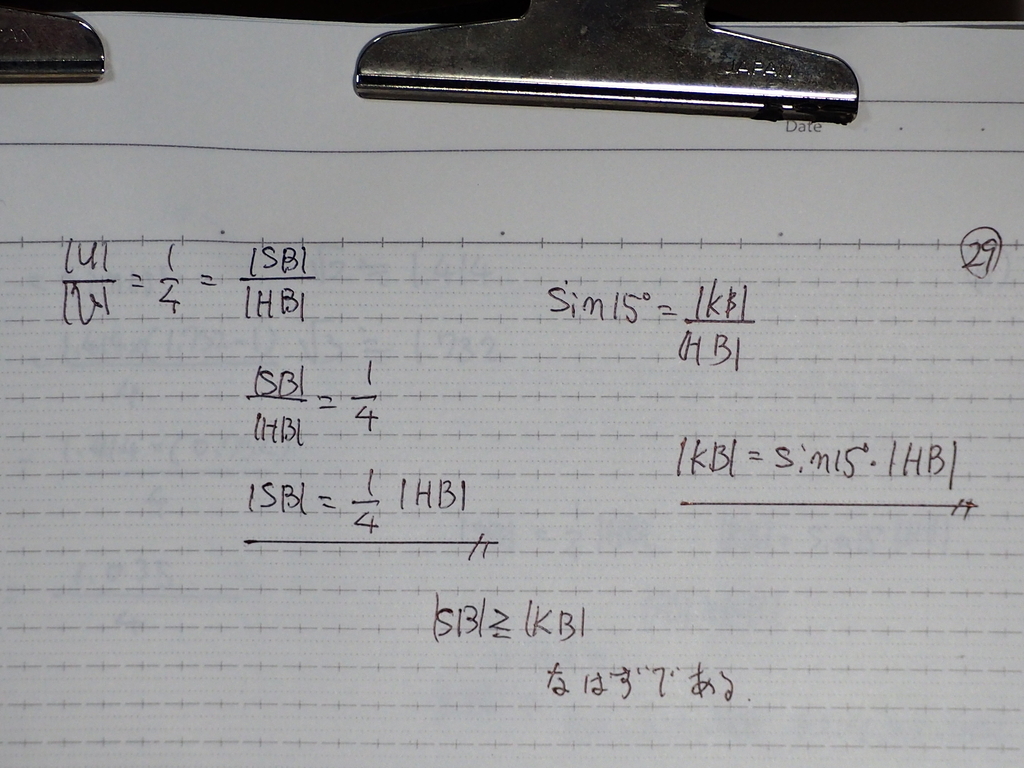 JAPAN
Date
29
|U|/|V| = 1/4 = |SB|/|HB|
sin15° = |KB|/|HB|
|SB|/|HB| = 1/4
|KB| = sin15°・|HB|
|SB| = 1/4 |HB|
|SB| ≧ |KB|
なはずである.